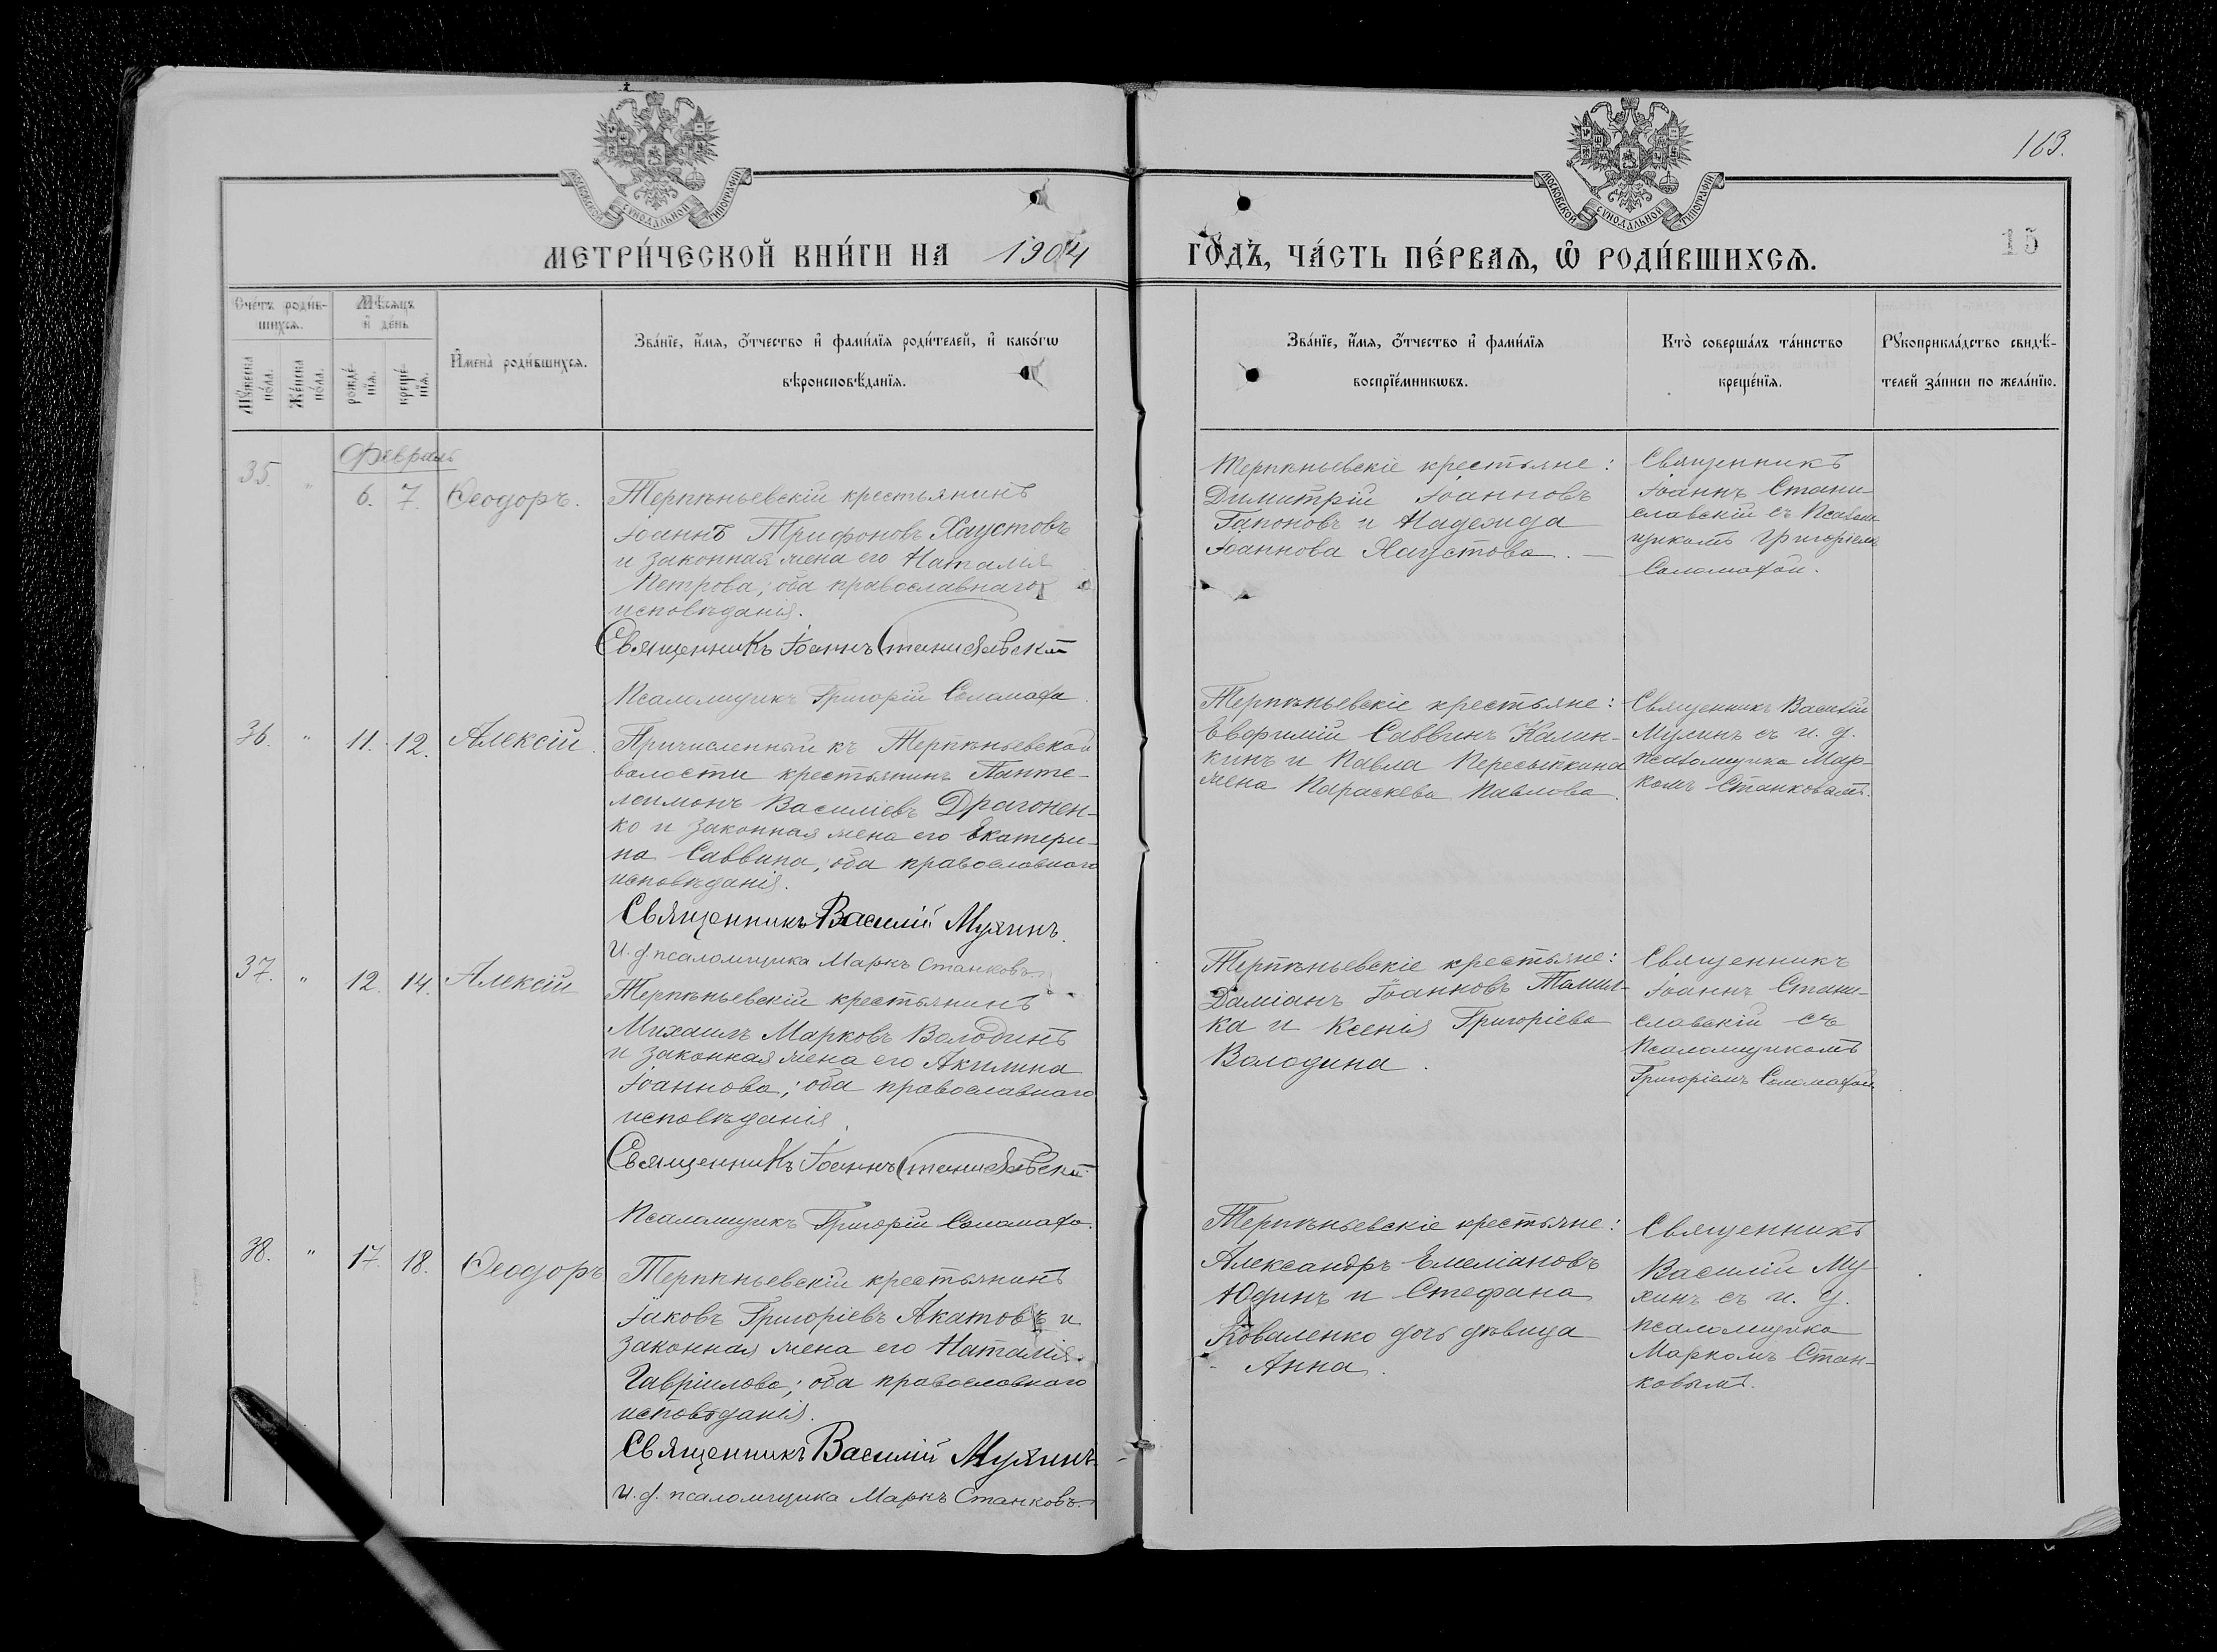 163.
МОСКОВСКОЙ СѴНОДАЛЬНОЙ ТИПОГРАФІИ
МОСКОВСКОЙ СѴНОДАЛЬНОЙ ТИПОГРАФІИ
МЕТРИ́ЧЕСКОЙ КНИ́ГИ НА 1904
ГО́ДЪ, ЧА́СТЬ ПЕ́РВАѦ, Ѡ҆ РОДИ́ВШИХСѦ.
15
Сче́тъ роди́в-
шихсѧ.
Мѣ́сѧцъ
и҆ де́нь
Мꙋ́жеска
по́ла.
Же́нска
по́ла.
рожде́-
нїѧ.
креще́-
нїѧ.
И҆мена̀ роди́вшихсѧ.
Зва́нїе, и҆́мѧ, ѻ҆́тчество и҆ фами́лїѧ роди́телей, и҆ како́гѡ
вѣроисповѣ́данїѧ.
Зва́нїе, и҆́мѧ, ѻ҆́тчество и҆ фами́лїѧ
воспрїе́мникѡвъ.
Кто̀ соверша́лъ та́инство
креще́нїѧ.
Рꙋкоприкла́дство свидѣ́-
телей за́писи по жела́нїю.
Февраль
35. " 6. 7. Ѳеодоръ.
Терпѣньевскій крестьянинъ
Іоаннъ Трифоновъ Хаустовъ
и законная жена его Наталія
Петрова; оба православнаго
исповѣданія.
Священникъ Іоаннъ Станиславскій
Псаломщикъ Григорій Соломаха.
Терпѣньевскіе крестьяне:
Димитрій Іоанновъ
Гапоновъ и Надежда
Іоаннова Хаустова. —
Священникъ
Іоаннъ Стани-
славскій съ Псалом-
щикомъ Григоріемъ
Соломахой.
36. " 11. 12. Алексій.
Причисленный къ Терпѣньевской
волости крестьянинъ Панте-
леимонъ Василіевъ Драгонен-
ко и законная жена его Екатери-
на Саввина; оба православнаго
исповѣданія.
Священникъ Василій Мухинъ.
И. д. псаломщика Маркъ Станковъ.
Терпѣньевскіе крестьяне:
Евфимій Саввинъ Калин-
кинъ и Павла Пересыпкина
жена Параскева Павлова.
Священникъ Василій
Мухинъ съ и. д.
псаломщика Мар-
комъ Станковымъ.
37. " 12. 14. Алексій
Терпѣньевскій крестьянинъ
Михаилъ Марковъ Володинъ
и законная жена его Акилина
Іоаннова; оба православнаго
исповѣданія.
Священникъ Іоаннъ Станиславскій
Псаломщикъ Григорій Соломаха.
Терпѣньевскіе крестьяне:
Даміанъ Іоанновъ Томил-
ка и Ксенія Григоріева
Володина.
Священникъ
Іоаннъ Стани-
славскій съ
Псаломщикомъ
Григоріемъ Соломахой.
38. " 17. 18. Ѳеодоръ
Терпѣньевскій крестьянинъ
Іаковъ Григоріевъ Акатовъ и
законная жена его Наталія
Гавріилова; оба православнаго
исповѣданія.
Священникъ Василій Мухинъ.
И. д. псаломщика Маркъ Станковъ.
Терпѣньевскіе крестьяне:
Александръ Емеліановъ
Юдинъ и Стефана
Коваленко дочь дѣвица
Анна.
Священникъ
Василій Му-
хинъ съ и. д.
псаломщика
Маркомъ Стан-
ковымъ.